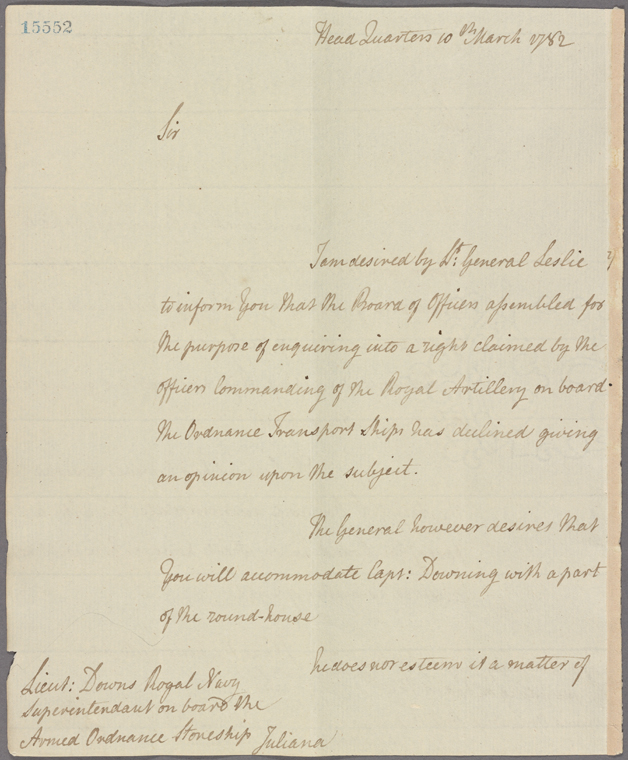 15552
Head Quarters 10th March 1782
Sir
I am desired by Lt: General Leslie
to inform You that the Board of Officers assembled for
the purpose of enquiring into a right claimed by the
officers Commanding of the Royal Artillery on board
the Ordnance Transport Ships has declined giving
an opinion upon the subject.
The General however desires that
You will accommodate Capt: Downing with a part
of the round-house
he does not esteem it a matter of
Lieut: Downs Royal Navy
Superintendant on board the
Armed Ordnance Storeship Juliana